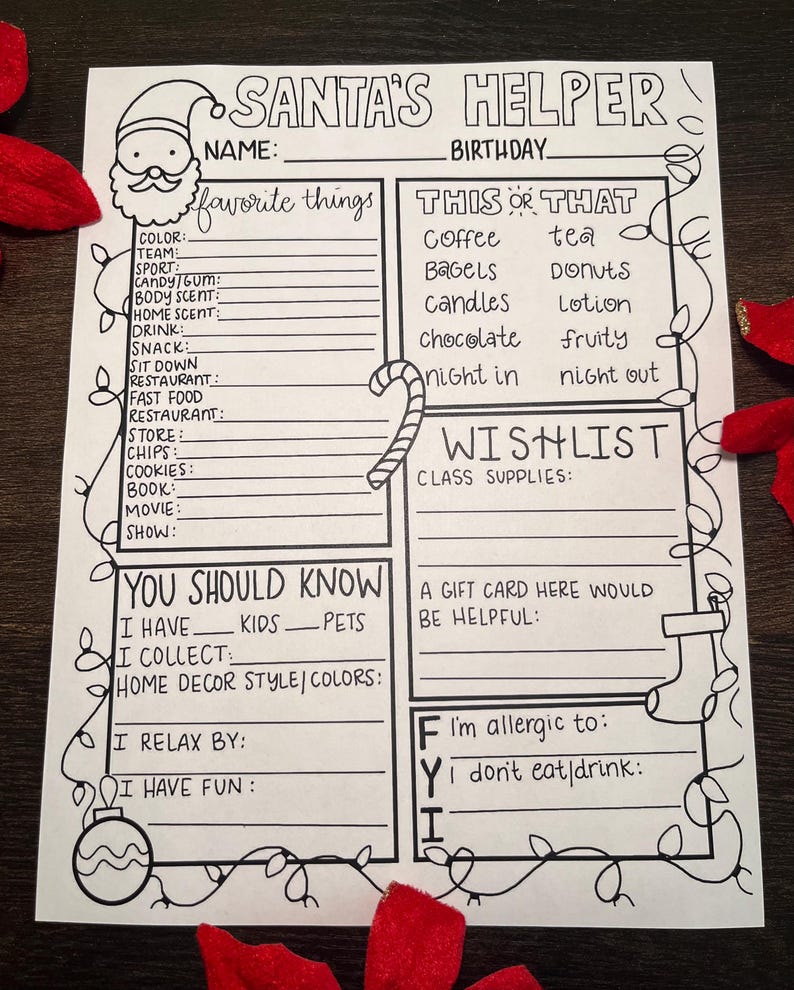 SANTA'S HELPER
NAME: BIRTHDAY
favorite things
COLOR:
TEAM:
SPORT:
CANDY/GUM:
BODY SCENT:
HOME SCENT:
DRINK:
SNACK:
SIT DOWN
RESTAURANT:
FAST FOOD
RESTAURANT:
STORE:
CHIPS:
COOKIES:
BOOK:
MOVIE:
SHOW:
THIS OR THAT
coffee tea
BAGELS DONUTS
candles LOTION
chocolate fruity
night in night out
WISHLIST
CLASS SUPPLIES:
A GIFT CARD HERE WOULD
BE HELPFUL:
YOU SHOULD KNOW
I HAVE KIDS PETS
I COLLECT:
HOME DECOR STYLE/COLORS:
I RELAX BY:
I HAVE FUN :
FYI
I'm allergic to:
I don't eat/drink: